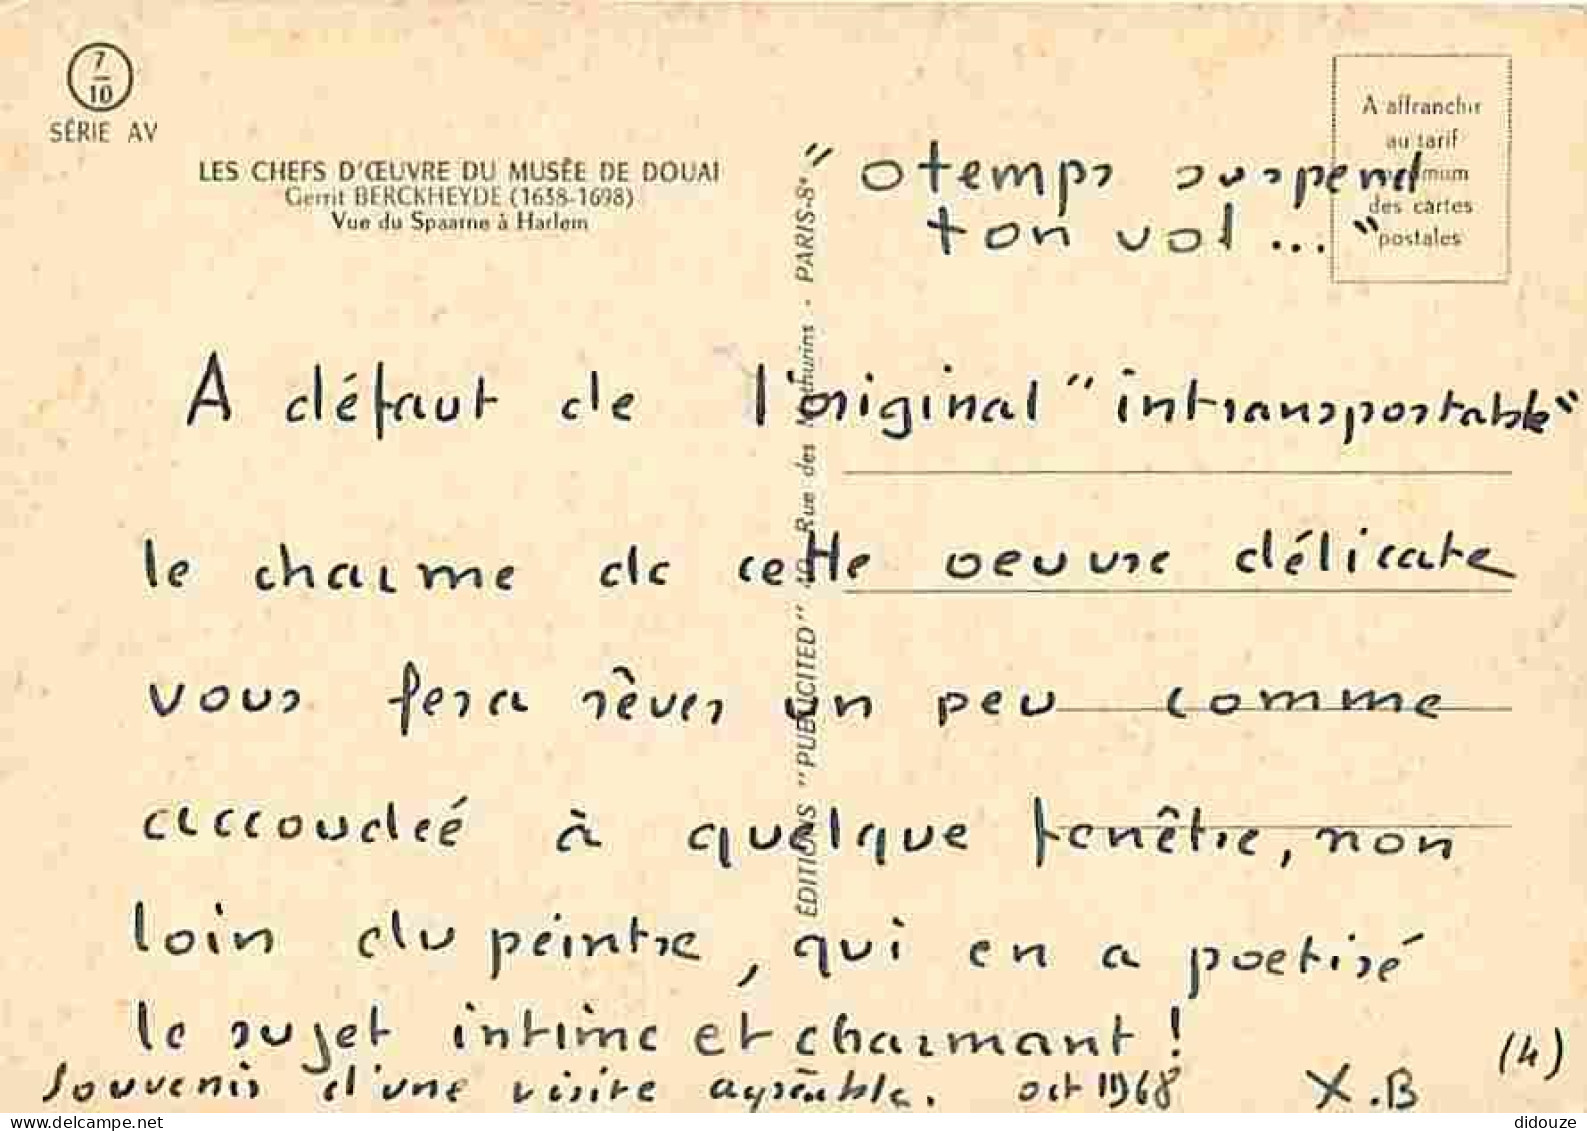 7
10
SÉRIE AV
LES CHEFS D'ŒUVRE DU MUSÉE DE DOUAI
Gerrit BERCKHEYDE (1638-1698)
Vue du Spaarne à Harlem
A affranchir
au tarif
mum
des cartes
postales
ÉDITIONS "PUBLICITED" 40, Rue des Mathurins - PARIS-8e
"O temps suspend
ton vol..."
A défaut de l'original "intransportable"
le charme de cette oeuvre délicate
vous fera rêver un peu comme
accoudé à quelque fenêtre, non
loin du peintre, qui en a poetisé
le sujet intime et charmant !
souvenir d'une visite agréable. oct 1968 X.B
(4)
didouze